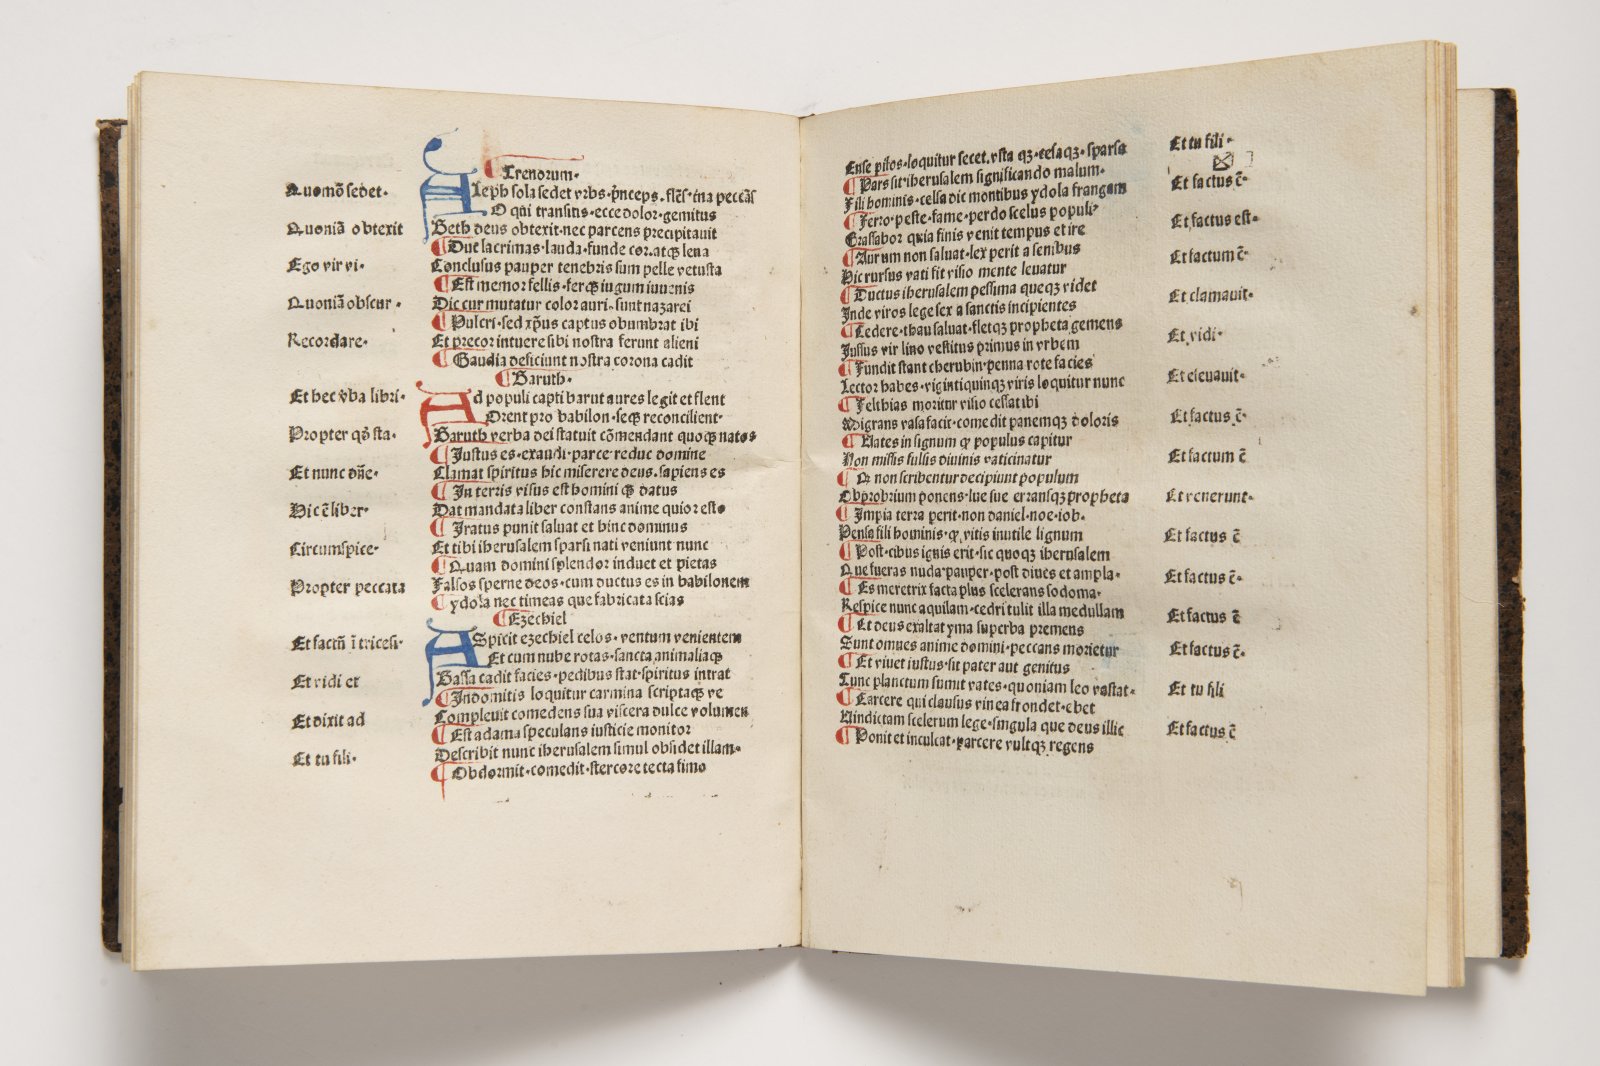 Trenorum·
Quomō sedet·
Aleph sola sedet vrbs·p̄nceps·flēs·tna peccās
O qui transitis·ecce dolor·gemitus
Quoniā obtexit
Beth deus obtexit·nec parcens precipitauit
Duc lacrimas·lauda·funde cor·atqꝫ lena
Ego vir vi·
Conclusus pauper tenebris sum pelle vetusta
Est memor fellis·ferqꝫ iugum iuuenis
Quoniā obscur·
Dic cur mutatur color auri·sunt nazarei
Pulcri·sed xp̄us captus obumbrat ibi
Recordare·
Et precor intuere sibi nostra ferunt alieni
Gaudia deficiunt nostra corona cadit
Baruth·
Et hec v̄ba libri·
Ad populi capti barut aures legit et flent
Orent pro babilon·seqꝫ reconcilient·
Propter qd̄ sta·
Baruth verba dei statuit cōmendant quoqꝫ natos
Justus es·exaudi·parce reduc domine
Et nunc dn̄e·
Clamat spiritus hic miserere deus·sapiens es
In terris visus est homini qꝫ datus
Hic ē liber·
Dat mandata liber constans anime quior esto
Iratus punit saluat et hinc dominus
Circumspice·
Et tibi iherusalem sparsi nati veniunt nunc
Quam domini splendor induet et pietas
Propter peccata
Falsos sperne deos·cum ductus es in babilonem
ydola nec timeas que fabricata scias
Ezechiel
Et factū ī tricesi·
Aspicit ezechiel celos·ventum venientem
Et cum nube rotas·sancta animaliaqꝫ
Et vidi et
Bassa cadit facies·pedibus stat·spiritus intrat
Indomitis loquitur carmina scriptaqꝫ ve
Et dixit ad
Compleuit comedens sua viscera dulce volumen
Est adama speculans iusticie monitor
Et tu fili·
Describit nunc iherusalem simul obsidet illam·
Obdormit·comedit·stercore tecta fimo
Ense pilos·loquitur secet·vsta qꝫ·cesaqꝫ·sparsa
Et tu fili·
Pars sit iherusalem significando malum·
Fili hominis·celsa dic montibus ydola frangam
Et factus ē·
Ferro·peste·fame·perdo scelus populi
Grassabor quia finis venit tempus et ire
Et factus est·
Aurum non saluat·lex perit a senibus
Hic rursus vati fit visio mente leuatur
Et factum ē·
Ductus iherusalem pessima queqꝫ videt
Inde viros lege sex a sanctis incipientes
Et clamauit·
Cedere·thau saluat·fletqꝫ propheta gemens
Jussus vir lino vestitus primus in vrbem
Et vidi·
Fundit stant cherubin·penna rote facies
Lector habes·vigintiquinqꝫ viris loquitur nunc
Et eleuauit·
Feltbias moritur visio cessat ibi
Migrans vasa facit·comedit panemqꝫ doloris
Et factus ē·
Vates in signum qꝫ populus capitur
Non missis fulsis diuinis vaticinatur
Et factum ē
Qꝫ non scribentur decipiunt populum
Obprobrium ponens·lue sue erransqꝫ propheta
Et venerunt·
Impia terra perit·non daniel·noe·iob·
Pensa fili hominis·qꝫ vitis inutile lignum
Et factus ē
Post·cibus ignis erit·sic quoqꝫ iherusalem
Que fueras nuda·pauper·post diues et ampla·
Et factus ē·
Es meretrix facta plus scelerans sodoma·
Respice nunc aquilam·cedri tulit illa medullam
Et factus ē
Et deus exaltat yma superba premens
Sunt omnes anime domini·peccans morietur
Et factus ē·
Et viuet iustus·sit pater aut genitus
Tunc planctum sumit vates·quoniam leo vastat·
Et tu fili
Carcere qui clausus vinea frondet·ebet
Vindictam scelerum lege·singula que deus illic
Et factus ē
Ponit et inculcat·parcere vultqꝫ regens